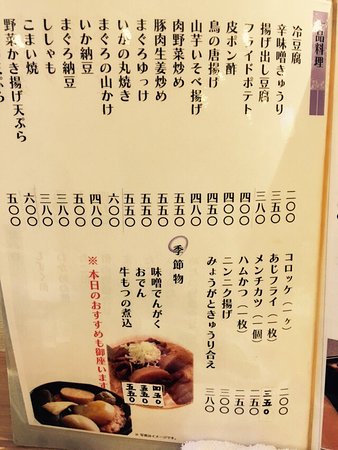 品料理
冷豆腐 二〇〇
辛味噌きゅうり 三五〇
揚げ出し豆腐 三八〇
フライドポテト 四〇〇
皮ポン酢 四〇〇
鳥の唐揚げ 四八〇
山芋いそべ揚げ 四八〇
肉野菜炒め 五五〇
豚肉生姜炒め 五五〇
まぐろゆっけ 五五〇
いかの丸焼き 五五〇
まぐろの山かけ 六〇〇
いか納豆 四八〇
まぐろ納豆 三八〇
ししゃも 三八〇
こまい焼 六〇〇
野菜かき揚げ天ぷら 五〇〇
コロッケ（一ヶ） 二〇〇
あじフライ（一枚） 三五〇
メンチカツ（一個） 二五〇
ハムカツ（一枚） 二五〇
ニンニク揚げ 三〇〇
みょうがときゅうり合え 三八〇
季節物
味噌でんがく 四五〇
おでん 五五〇
牛もつの煮込 五五〇
※本日のおすすめも御座います
※写真はイメージです。